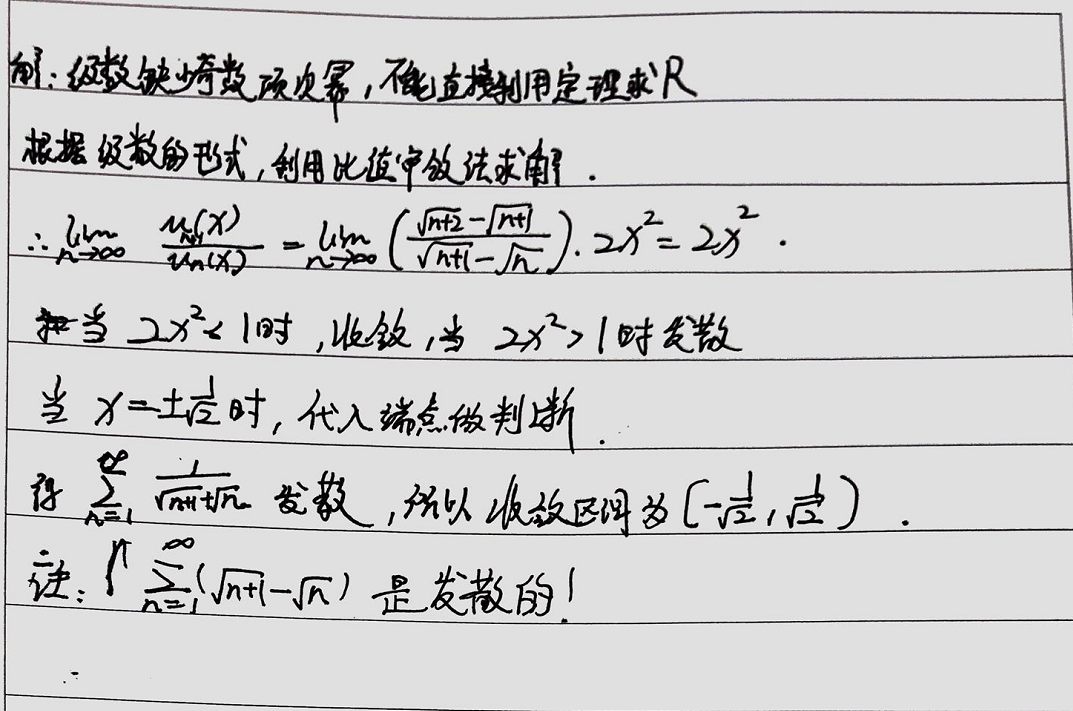 解：级数缺少奇数项次幂，不能直接利用定理求R
根据级数的形式，利用比值审敛法求解．
∴ lim n→∞ u_{n+1}(x)/u_n(x) = lim n→∞ ((√(n+2)-√(n+1))/(√(n+1)-√n))·2x² = 2x² .
当 2x²<1时，收敛，当 2x²>1时发散
当 x=±1/√2时，代入端点做判断．
得 ∑_{n=1}^{∞} 1/(√(n+1)+√n) 发散，所以收敛区间为(-1/√2, 1/√2) .
注：↑ ∑_{n=1}^{∞}(√(n+1)-√n) 是发散的！